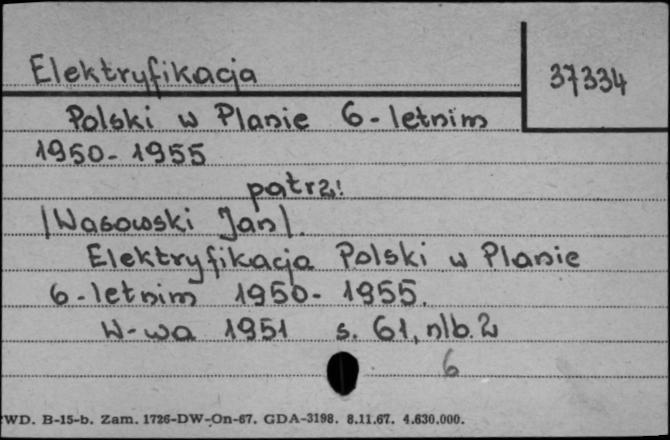 Elektryfikacja
37334
Polski w Planie 6-letnim
1950-1955
patrz:
/Wąsowski Jan/.
Elektryfikacja Polski w Planie
6-letnim 1950-1955.
W-wa 1951 s. 61, nlb. 2
6
WD. B-15-b. Zam. 1726-DW-On-67. GDA-3198. 8.11.67. 4.630.000.